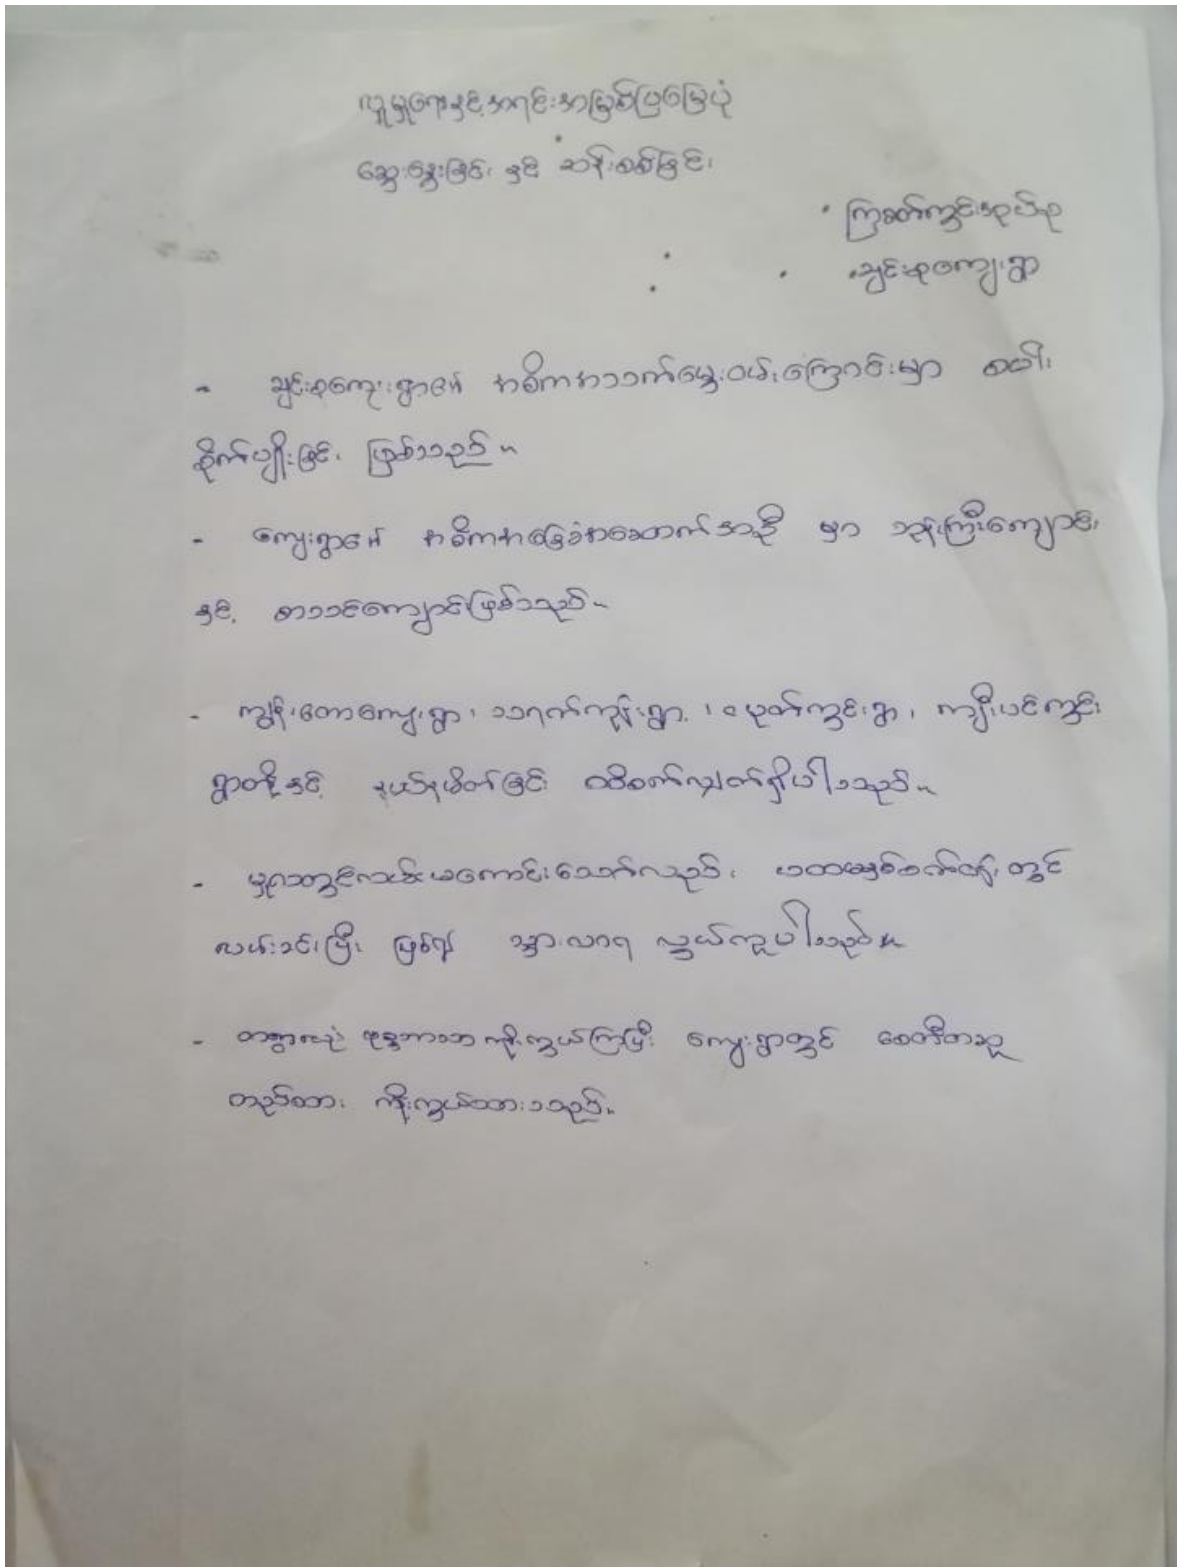 လူမှုရေးနှင့်အရင်းအမြစ်ပြမြေပုံ
ဆွေးနွေးခြင်း နှင့် ဆန်းစစ်ခြင်း
ကြခတ်ကွင်းအုပ်စု
ချင်းစုကျေးရွာ
- ချင်းစုကျေးရွာ၏ အဓိကအသက်မွေးဝမ်းကြောင်းမှာ စပါး
စိုက်ပျိုးခြင်း ဖြစ်သည်။
- ကျေးရွာ၏ အဓိကအခြေခံအဆောက်အဦ မှာ ဘုန်းကြီးကျောင်း
နှင့် စာသင်ကျောင်းဖြစ်သည်။
- ကျွန်းတောကျေးရွာ၊ သရက်ကုန်းရွာ၊ ငမုတ်ကွင်းရွာ၊ ကျီးပင်ကွင်း
ရွာတို့နှင့် နယ်နမိတ်ခြင်း ထိစပ်လျှက်ရှိပါသည်။
- မူလတွင်လမ်းမကောင်းသော်လည်း ပထမနှစ်ဝက်တွင်
လမ်းခင်းပြီး ဖြစ်၍ သွားလာရ လွယ်ကူပါသည်။
- တရွာလုံး ဗုဒ္ဓဘာသာ ကိုးကွယ်ကြပြီး ကျေးရွာတွင် စေတီတဆူ
တည်ထား ကိုးကွယ်ထားသည်။